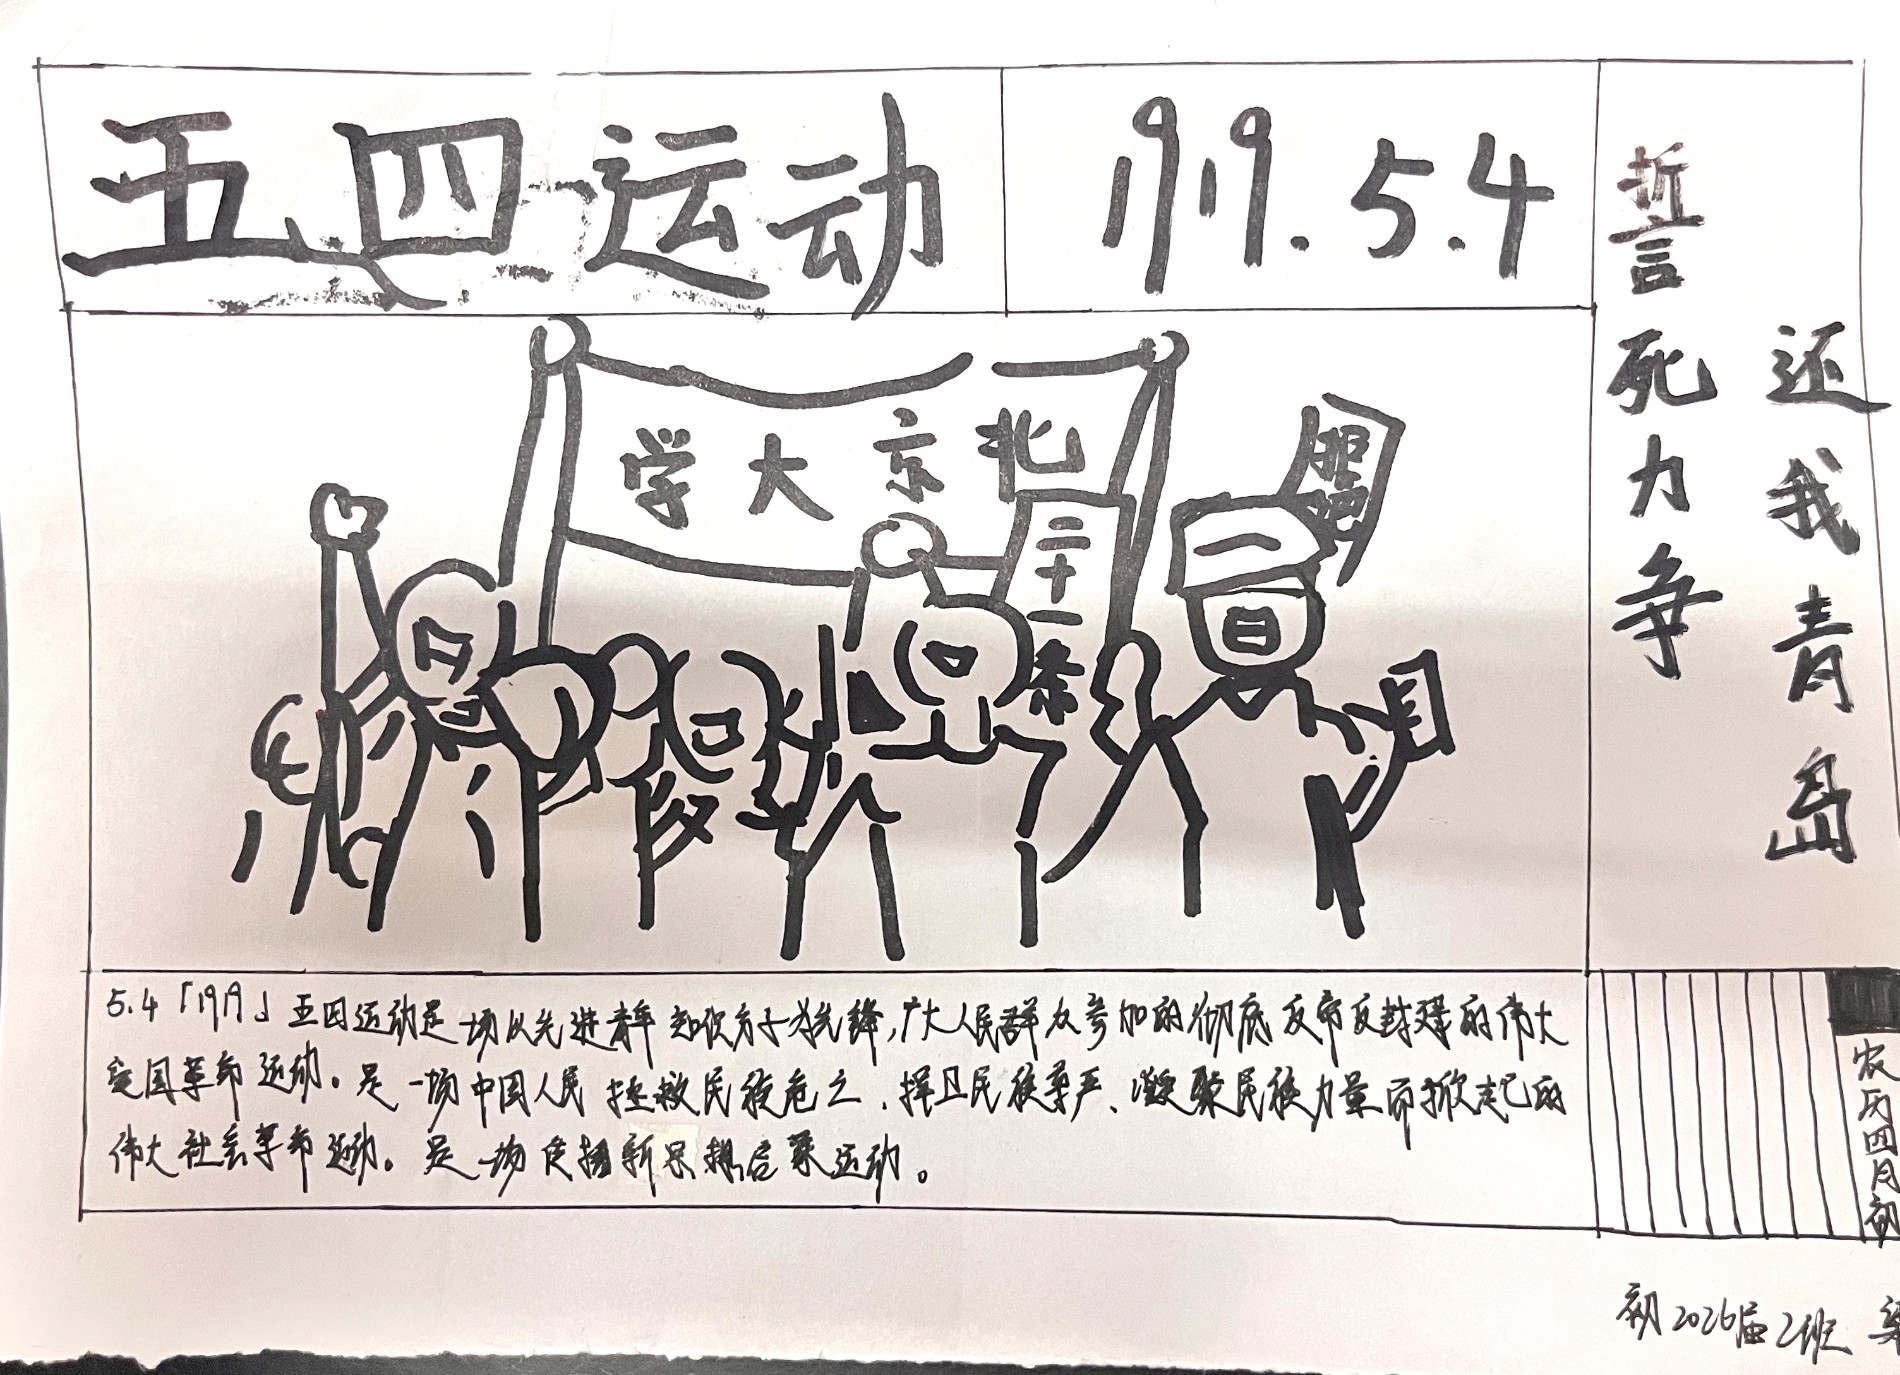 五四运动
1919.5.4
誓死力争
还我青岛
北京大学
二十一条
5.4「1919」五四运动是一场以先进青年知识分子为先锋，广大人民群众参加的彻底反帝反封建的伟大
爱国革命运动。是一场中国人民拯救民族危亡、捍卫民族尊严、凝聚民族力量而掀起的
伟大社会革命运动。是一场传播新思想启蒙运动。
农历四月初
初2026届2班